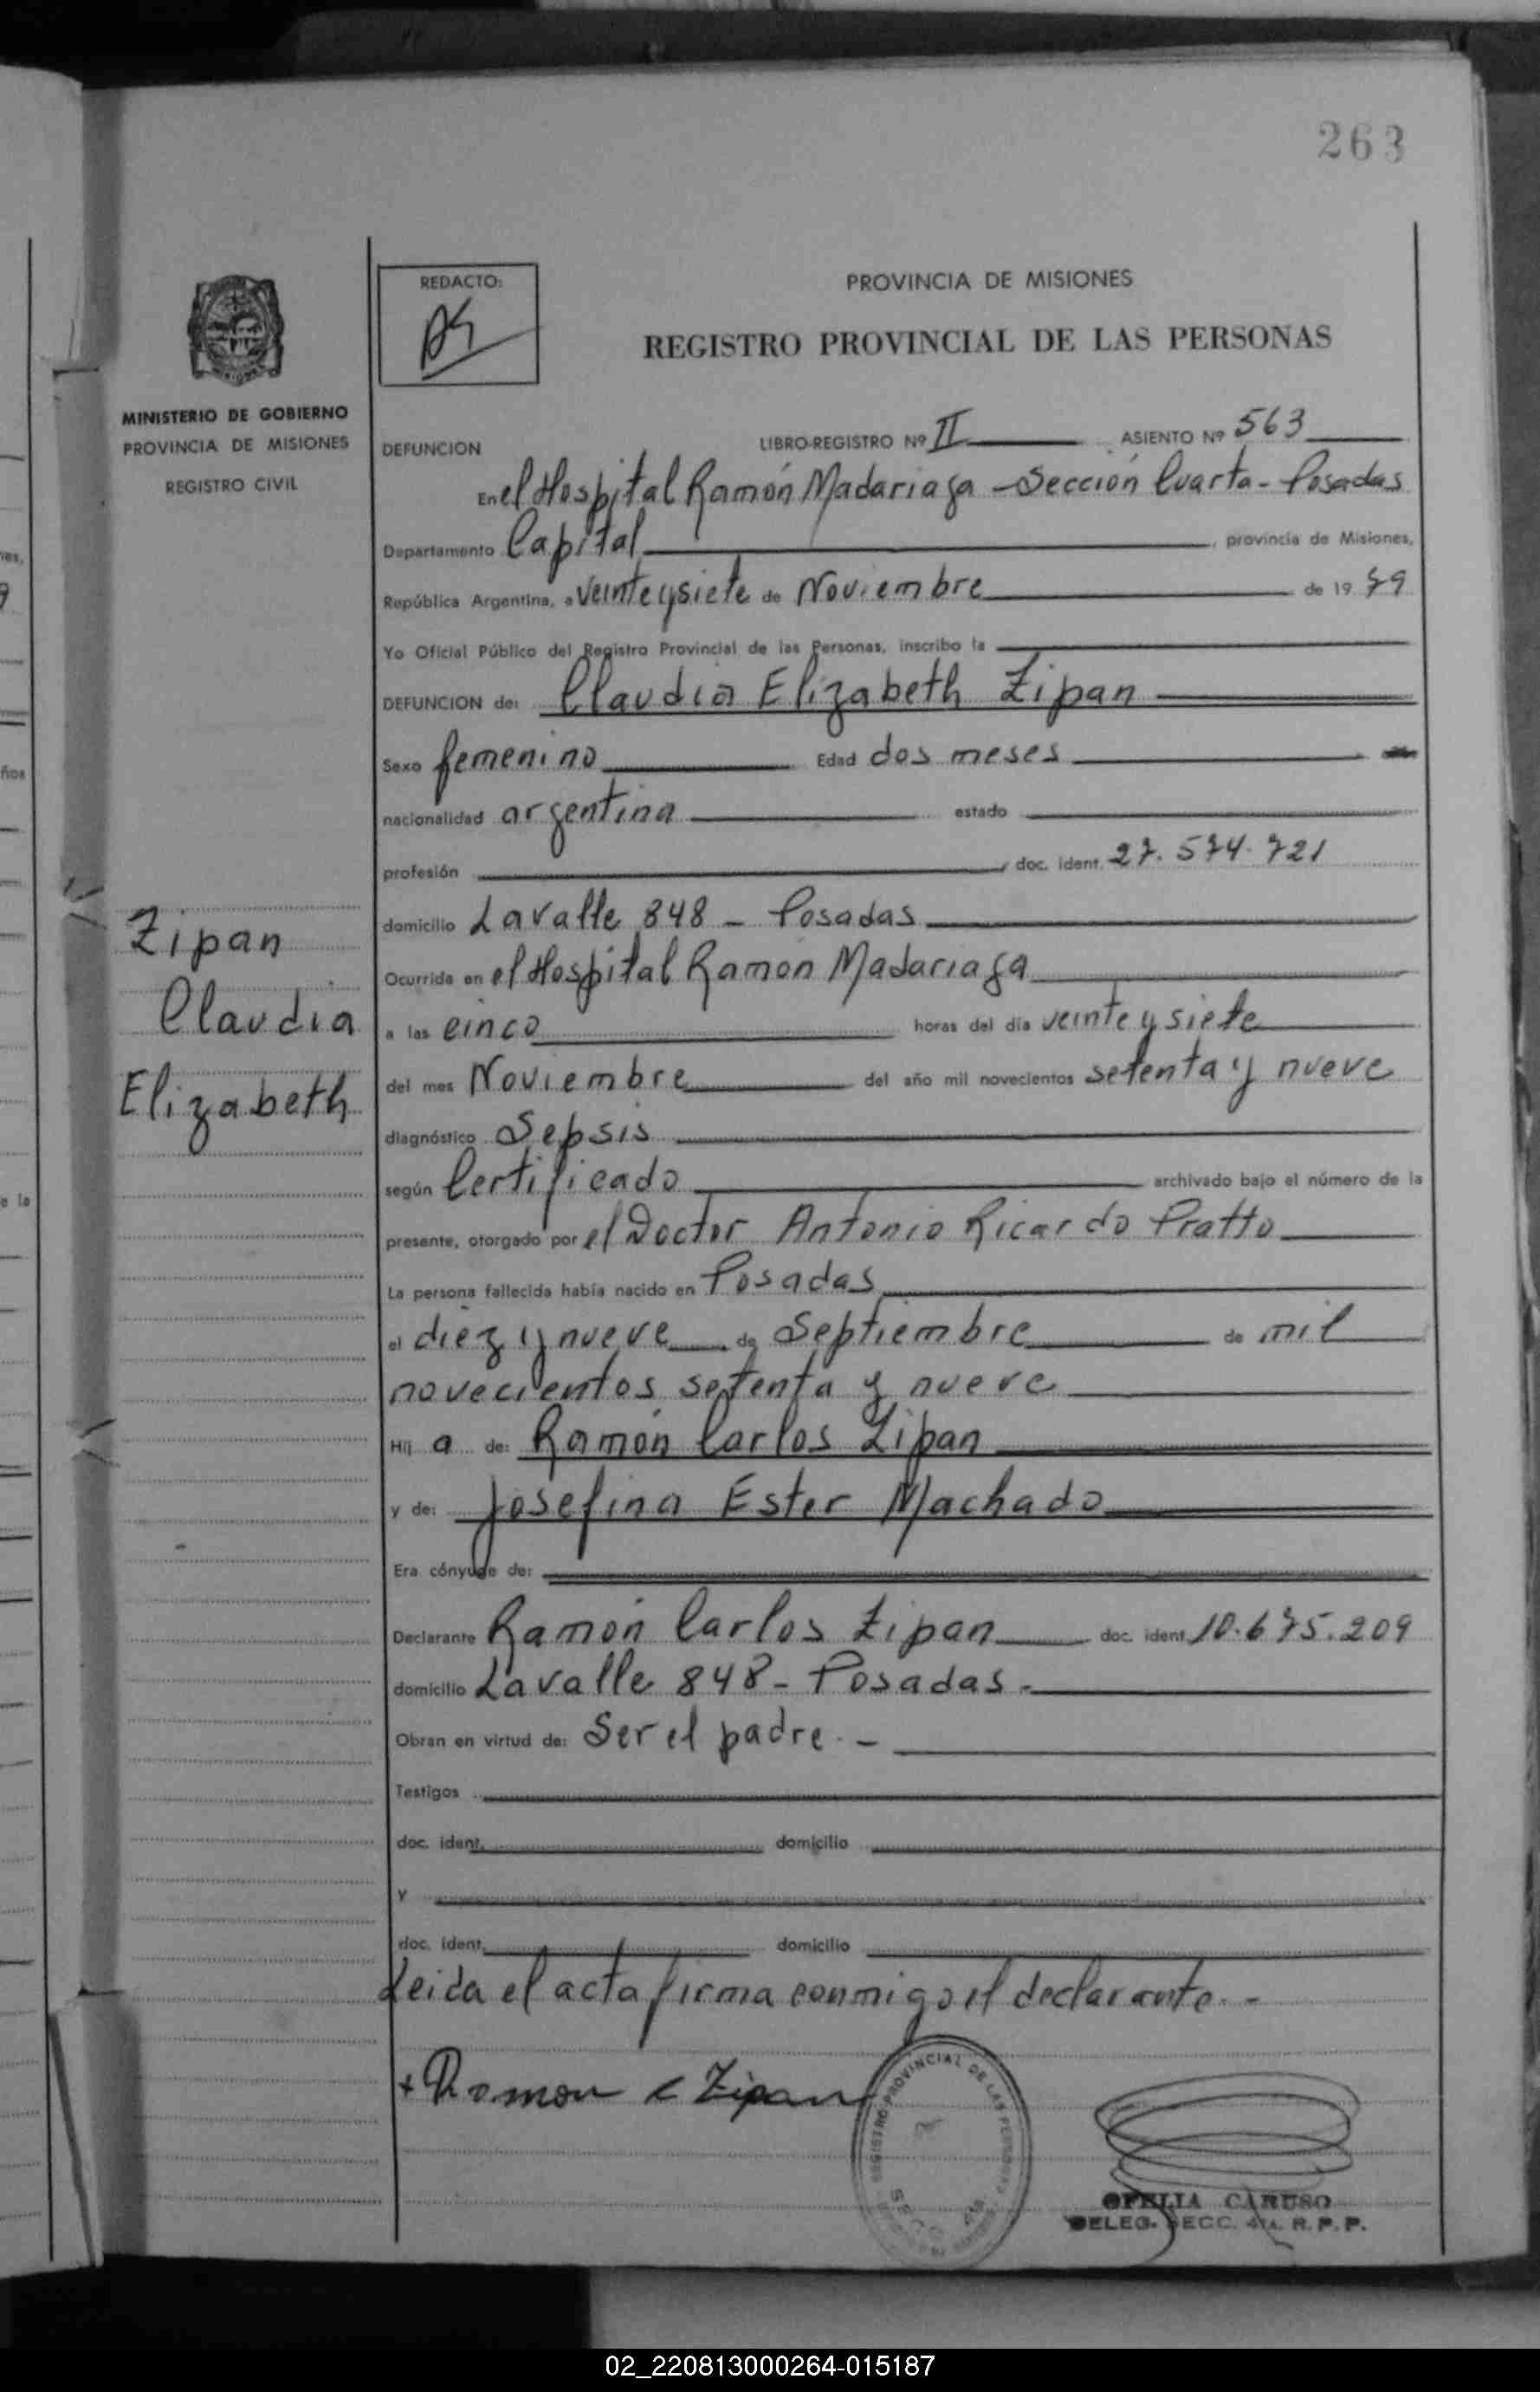 263
REDACTO:
PROVINCIA DE MISIONES
REGISTRO PROVINCIAL DE LAS PERSONAS
MINISTERIO DE GOBIERNO
PROVINCIA DE MISIONES
REGISTRO CIVIL
DEFUNCION LIBRO-REGISTRO Nº II ASIENTO Nº 563
En el Hospital Ramón Madariaga - Sección Cuarta - Posadas
Departamento Capital, provincia de Misiones,
República Argentina, a veinte y siete de Noviembre de 1979
Yo Oficial Público del Registro Provincial de las Personas, inscribo la
DEFUNCION de: Claudia Elizabeth Zipan
Sexo femenino Edad dos meses
nacionalidad argentina estado
profesión, doc. ident. 27.574.721
domicilio Lavalle 848 - Posadas
Ocurrida en el Hospital Ramón Madariaga
a las cinco horas del día veinte y siete
del mes Noviembre del año mil novecientos setenta y nueve
diagnóstico Sepsis
según Certificado archivado bajo el número de la
presente, otorgado por el Doctor Antonio Ricardo Pratto
La persona fallecida había nacido en Posadas
el diez y nueve de Septiembre de mil
novecientos setenta y nueve
Hij a de: Ramón Carlos Zipan
y de: Josefina Ester Machado
Era cónyuge de:
Declarante Ramón Carlos Zipan doc. ident. 10.675.209
domicilio Lavalle 848 - Posadas.-
Obran en virtud de: Ser el padre.-
Testigos
doc. ident. domicilio
y
doc. ident. domicilio
Leida el acta firma conmigo el declarante.-
Zipan
Claudia
Elizabeth
+ Ramon C Zipan
REGISTRO PROVINCIAL DE LAS PERSONAS
OFELIA CARUSO
DELEG. SECC. 4ta. R.P.P.
02_220813000264-015187